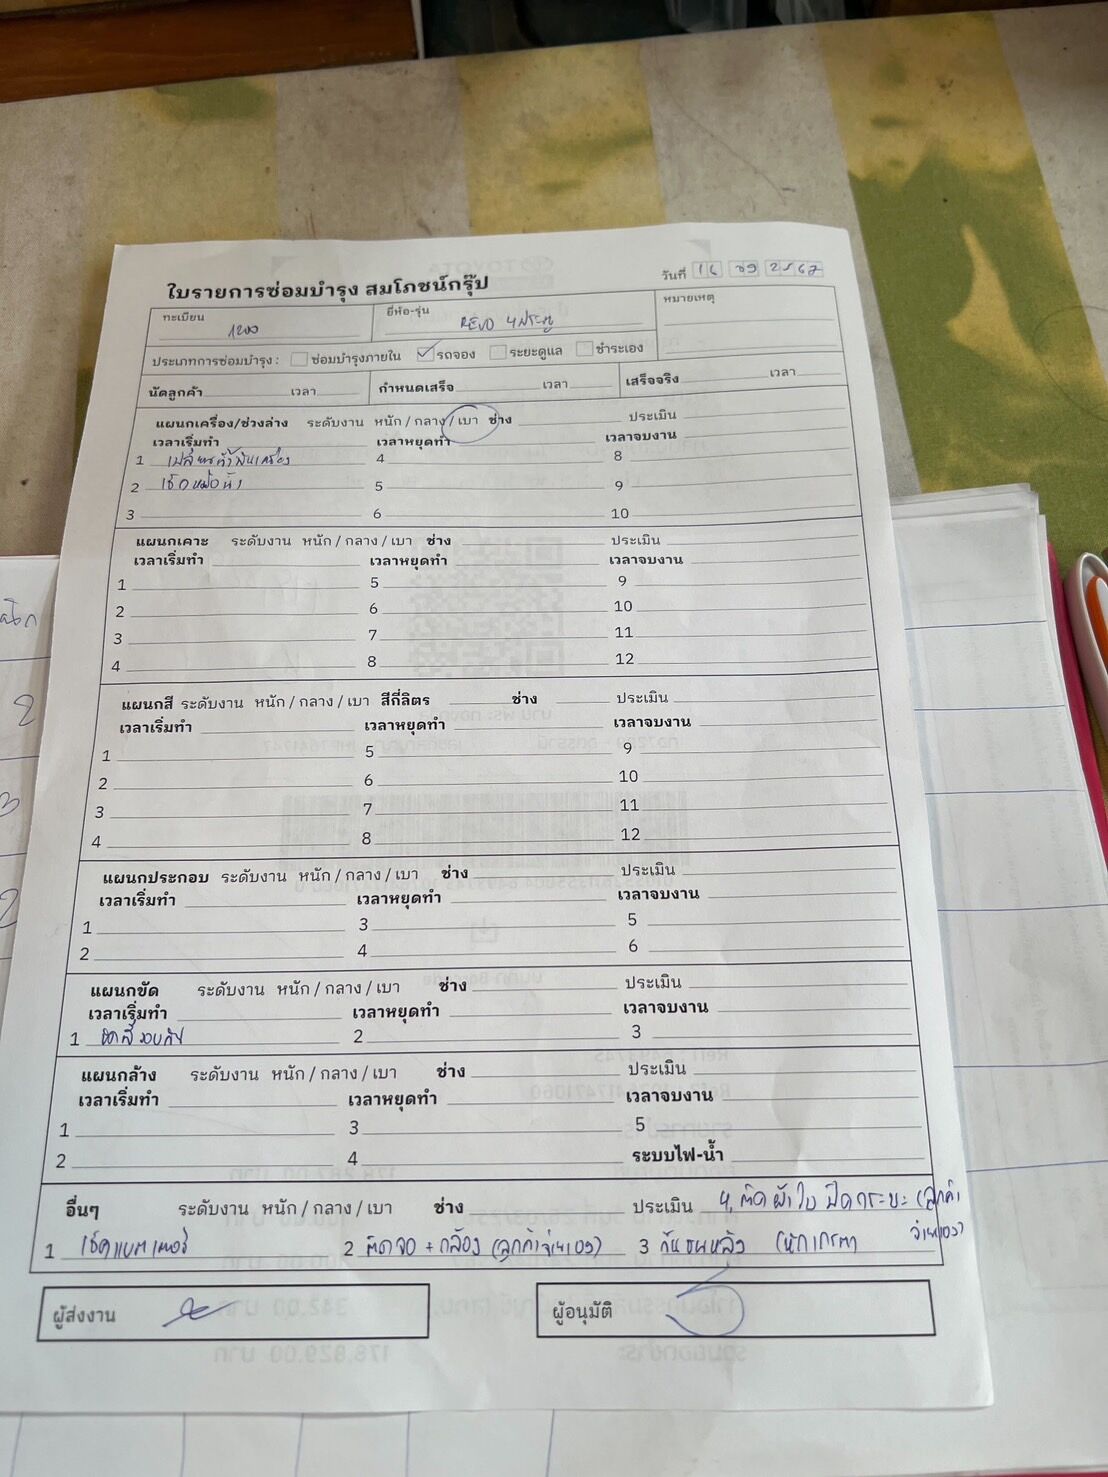 ใบรายการซ่อมบำรุง สมโภชน์กรุ๊ป
วันที่ 16 09 2567
ทะเบียน 1200
ยี่ห้อ-รุ่น REVO 4ประตู
หมายเหตุ
ประเภทการซ่อมบำรุง : ซ่อมบำรุงภายใน รถจอง ระยะดูแล ชำระเอง
นัดลูกค้า เวลา กำหนดเสร็จ เวลา เสร็จจริง เวลา
แผนกเครื่อง/ช่วงล่าง ระดับงาน หนัก / กลาง / เบา ช่าง ประเมิน
เวลาเริ่มทำ เวลาหยุดทำ เวลาจบงาน
1 4 8
2 เช็คหม้อน้ำ 5 9
3 6 10
แผนกเคาะ ระดับงาน หนัก / กลาง / เบา ช่าง ประเมิน
เวลาเริ่มทำ เวลาหยุดทำ เวลาจบงาน
1 5 9
2 6 10
3 7 11
4 8 12
แผนกสี ระดับงาน หนัก / กลาง / เบา สีกี่ลิตร ช่าง ประเมิน
เวลาเริ่มทำ เวลาหยุดทำ เวลาจบงาน
1 5 9
2 6 10
3 7 11
4 8 12
แผนกประกอบ ระดับงาน หนัก / กลาง / เบา ช่าง ประเมิน
เวลาเริ่มทำ เวลาหยุดทำ เวลาจบงาน
1 3 5
2 4 6
แผนกขัด ระดับงาน หนัก / กลาง / เบา ช่าง ประเมิน
เวลาเริ่มทำ เวลาหยุดทำ เวลาจบงาน
1 ขัดสีรอบคัน 2 3
แผนกล้าง ระดับงาน หนัก / กลาง / เบา ช่าง ประเมิน
เวลาเริ่มทำ เวลาหยุดทำ เวลาจบงาน
1 3 5
2 4 ระบบไฟ-น้ำ
อื่นๆ ระดับงาน หนัก / กลาง / เบา ช่าง ประเมิน 4. ติดผ้าใบ ปิดกระบะ (ลูกค้า
จ่ายเอง)
1 เช็คแบตเตอรี่ 2 ติดจอ + กล้อง (ลูกค้าจ่ายเอง) 3 กันชนหลัง
ผู้ส่งงาน
ผู้อนุมัติ